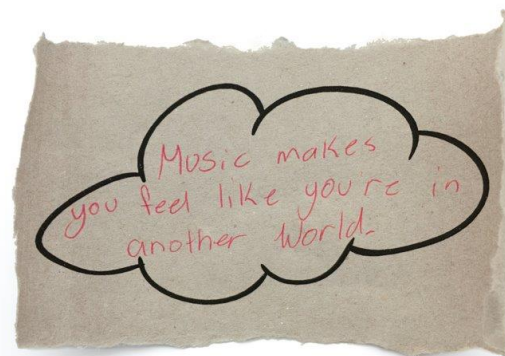 Music makes
you feel like you're in
another World.